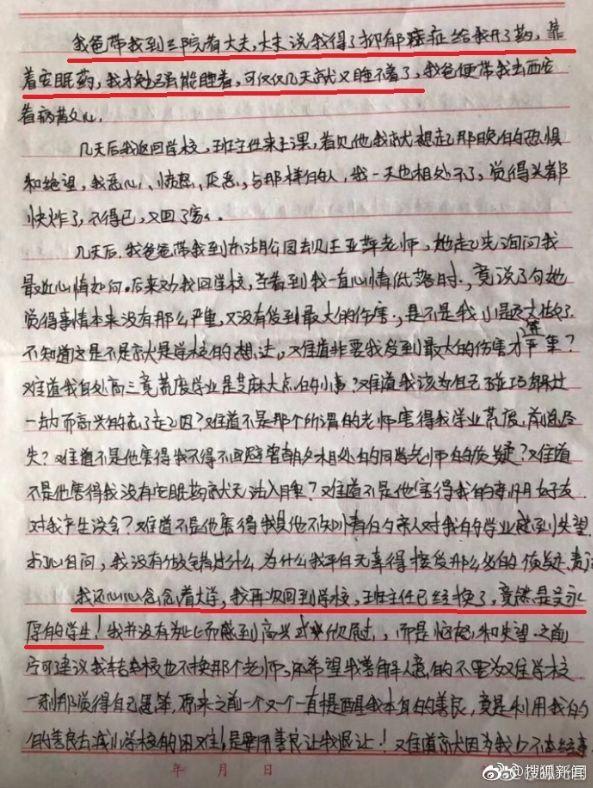 我爸带我到三院看大夫,大夫说我得了抑郁症给我开了药,靠
着安眠药,我才勉强能睡着,可仅仅几天就又睡不着了,我爸便带我去西安
看病散心。
几天后我返回学校,班主任来上课,看见他我就想起那晚的恐惧
和绝望,我恶心、愤怒、厌恶,与那样的人,我一天也相处不了,觉得头都
快炸了,不得已,又回了家。
几天后,我爸爸带我到 湖公园去见王亚萍老师,她起先询问我
最近心情如何。后来劝我回学校,当看到我一直心情低落时,竟说了句她
觉得事情本来没有那么严重,又没有受到最大的伤害,是不是我小题大做了
不知道这是不是 也是学校的想法,难道非要我受到最大的伤害才算严重?
难道我身处高三荒废学业是芝麻大点的小事?难道我该为自己 躲过
一劫而高兴的 ?难道不是那个所谓的老师害得我学业荒废,前途尽
失?难道不是他害得我不得不回避曾朝夕相处的同学老师的质疑?难道
不是他害得我没有安眠药就无法入睡?难道不是他害得我的 好友
对我产生误会?难道不是他害得我其他不知情的亲人对我的学业感到失望
扪心自问,我没有做错过什么,为什么我平白无辜得接受那么多的 质疑、责
我还心心念念着大学,我再次回到学校,班主任已经换了,竟然是吴永
厚的学生!我并没有为此而感到高兴或欣慰,而是恼怒和失望,之前
宁可建议我转学校也不换那个老师,还希望我善解人意的不要为难学校
一刹那觉得自己愚笨,原来之前一个又一个一直提醒我本身的善良,竟是利用我的
的善良去减小学校的困难,是要用善良让我退让!难道就因为我
年 月 日
@搜狐新闻